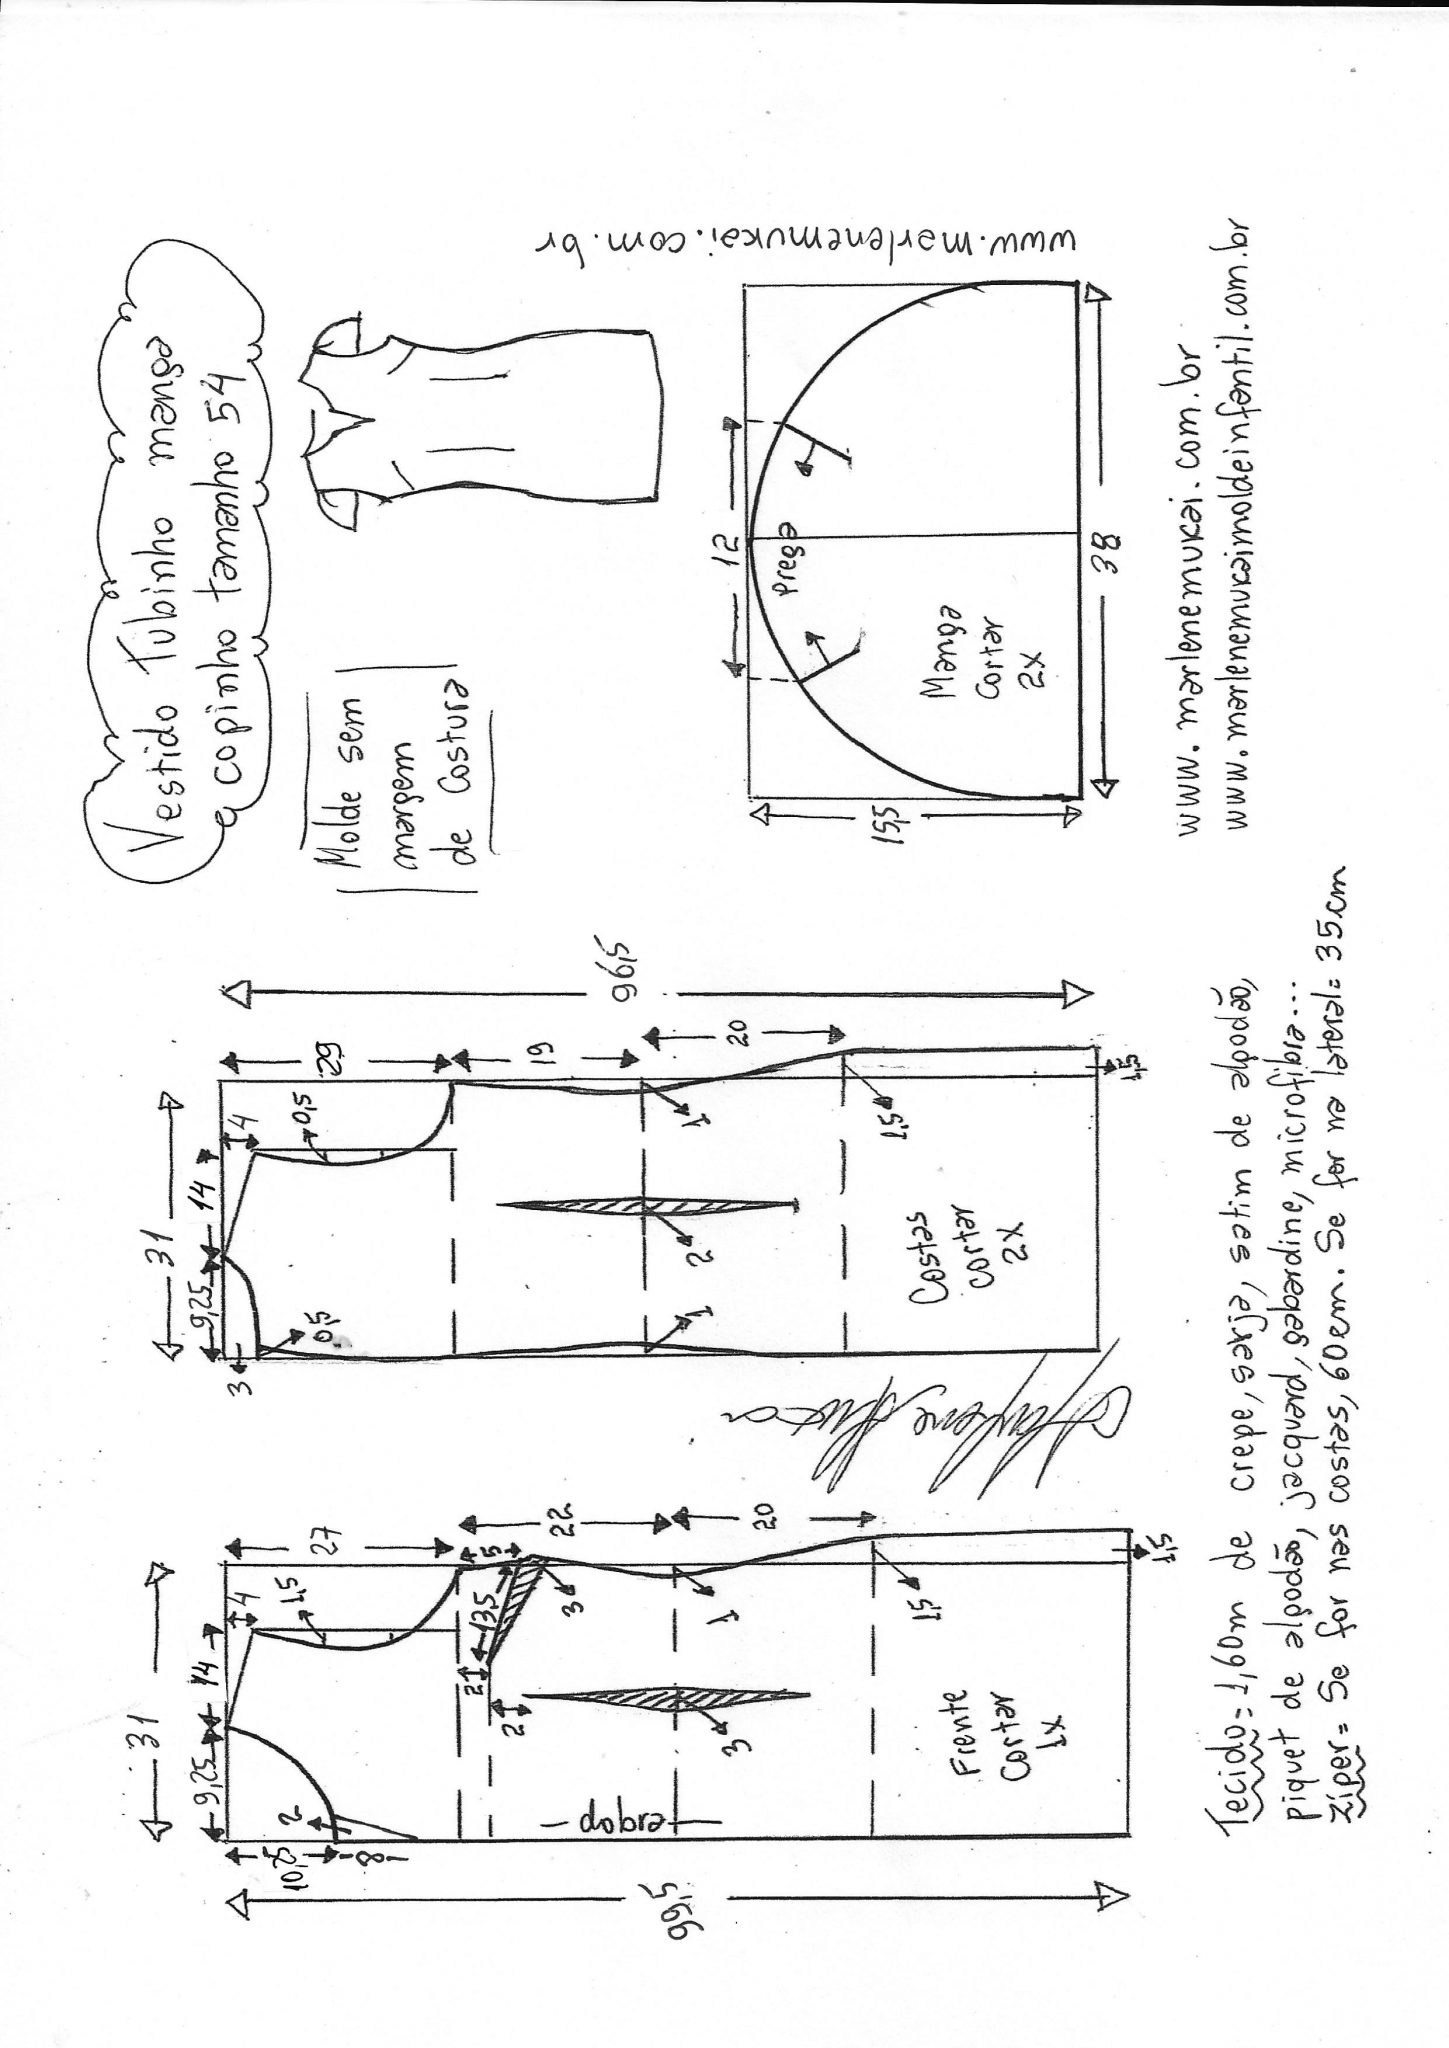 Vestido Tubinho manga
copinho tamanho 54
Molde sem
margem
de costura
www.marlenemukai.com.br
31
9,25
14
4
27
1,5
10,25
8
2
5
13,5
2
2
3
22
1
20
1,5
3
dobra
99,5
Frente
Cortar
1x
1,5
31
9,25
14
4
29
0,5
3
0,5
19
1
2
1
20
1,5
96,5
Costas
cortar
2x
1,5
12
Prega
15,5
Manga
cortar
2x
38
www.marlenemukai.com.br
www.marlenemukaimoldeinfantil.com.br
Tecido = 1,60m de crepe, sarja, satim de algodão,
piquet de algodão, Jacquard, gabardine, microfibra...
Zíper = Se for nas costas, 60cm. Se for na lateral = 35cm